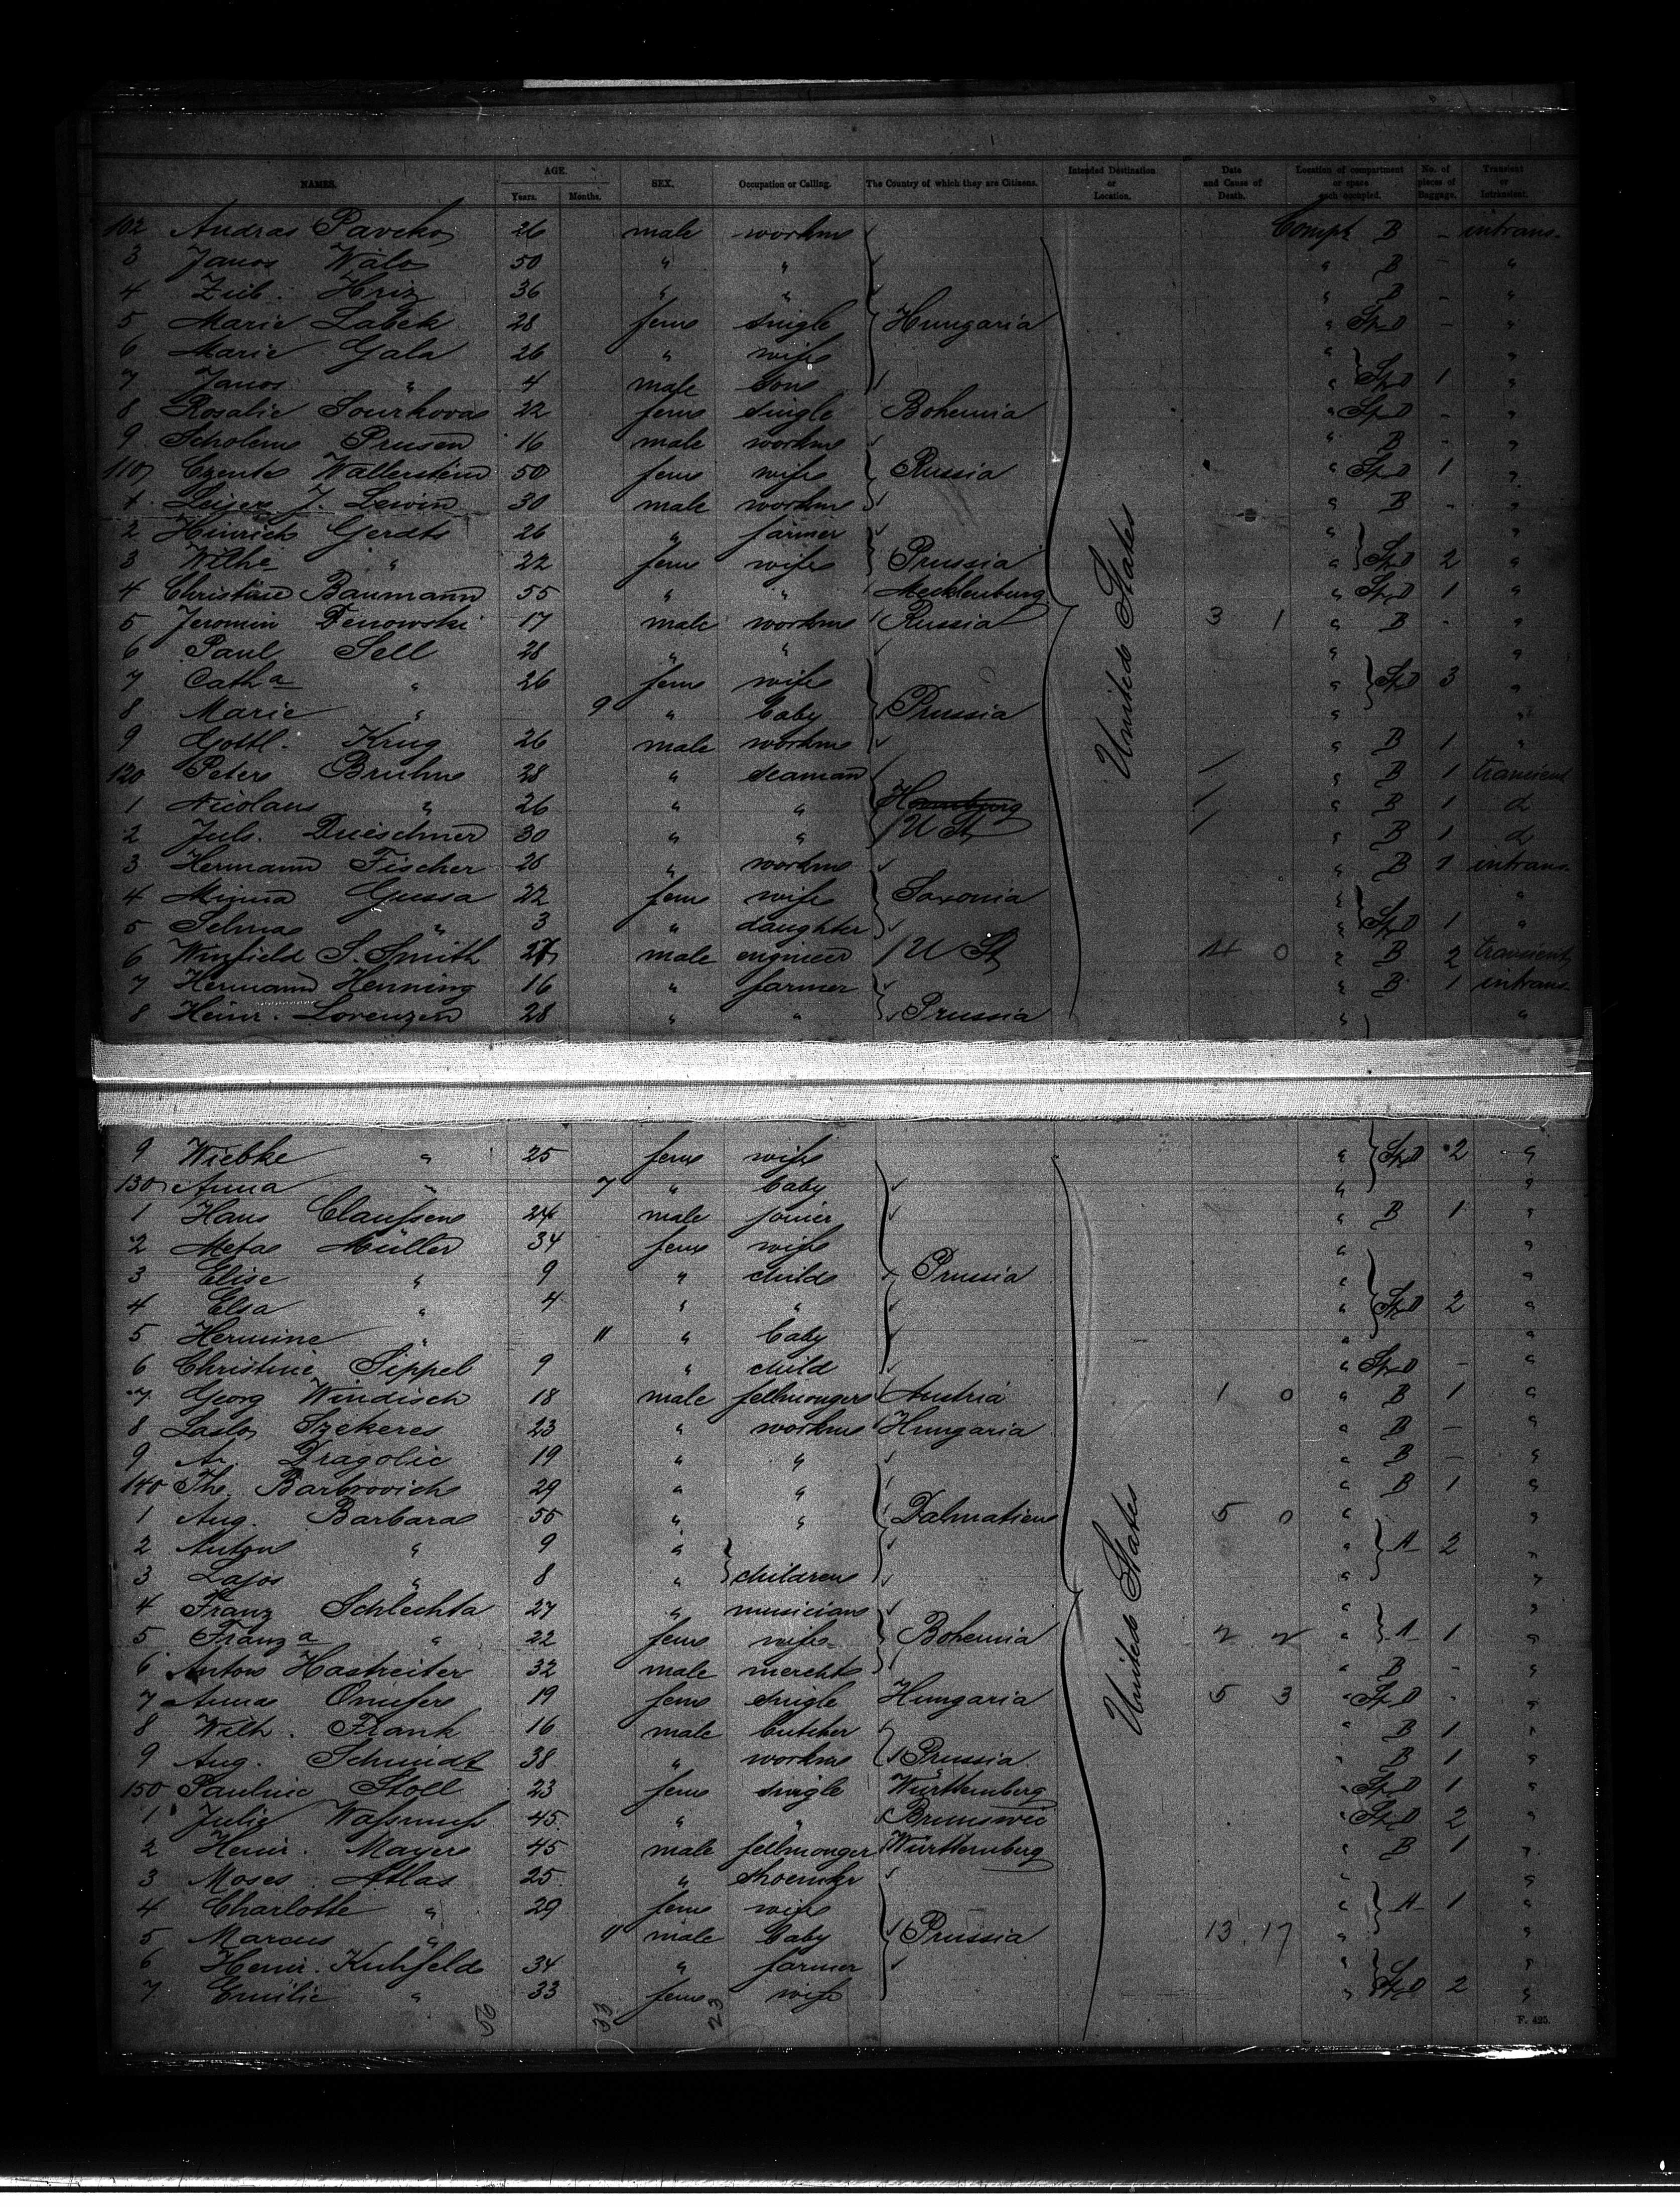 NAMES. AGE. SEX. Occupation or Calling. The Country of which they are Citizens. Intended Destination or Location. Date and Cause of Death. Location of compartment or space each occupied. No. of pieces of Baggage. Transient or Intransient.
Years. Months.
102 Andras Pavcko 26 male workme Compt B - intrans.
3 Janos Walo 50 " " " B - "
4 Zub. Hriz 36 " " " B - "
5 Marie Labek 28 feme single Hungaria " Sp D - "
6 Marie Gala 26 " wife " "
7 Janos " 4 male son " Sp D 1 "
8 Rosalie Sourkova 22 feme single Bohemia " Sp D - "
9 Scholeme Prusen 16 male workme " B - "
110 Czente Wallerstein 50 feme wife Russia " Sp D 1 "
1 Leiser J. Lewin 30 male workme " B - "
2 Hinrich Gerdts 26 " farmer " "
3 Wilhe " 22 feme wife Prussia " Sp D 2 "
4 Christine Baumann 55 " " Mecklenburg " Sp D 1 "
5 Jeromin Denowski 17 male workme Russia United States 3 1 " B - "
6 Paul Sell 28 " " " "
7 Catha " 26 feme wife " Sp D 3 "
8 Marie " 9 " baby Prussia " "
9 Gottl. Krug 26 male workme " B 1 "
120 Peter Bruhn 28 " seaman / " B 1 transient
1 Nicolaus " 26 " " Hamburg / " B 1 d
2 Juls. 30 " " U St / " B 1 d
3 Hermann Fischer 28 " workme " B 1 intrans.
4 Minna Gussa 22 feme wife Saxonia " "
5 Selma " 3 " daughter " Sp D 1 "
6 Winfield S. Smith 27 male engineer U St 4 0 " B 2 transient
7 Hermann Henning 16 " farmer " B 1 intrans.
8 Heinr. Lorenzen 28 " " Prussia " "
9 Wiebke " 25 feme wife " Sp D 2 "
130 Anna " 7 " baby " "
1 Hans Claussen 24 male joiner " B 1 "
2 Meta Müller 34 feme wife " "
3 Elise " 9 " child Prussia " "
4 Elsa " 4 " " " Sp D 2 "
5 Hermine " 11 " baby " "
6 Christine Sippel 9 " child " Sp D - "
7 Georg Windisch 18 male fellmonger Austria 1 0 " B 1 "
8 Laslo Szekeres 23 " workme Hungaria " B - "
9 A. Dragolic 19 " " " B - "
140 The. Barbrovich 29 " " " B 1 "
1 Aug. Barbara 55 " " Dalmatien United States 5 0 " "
2 Anton " 9 " " A 2 "
3 Lajos " 8 " children " "
4 Franz Schlechta 27 " musician " "
5 Franza " 22 feme wife Bohemia 2 2 " A 1 "
6 Anton Hastreiter 32 male mercht " B - "
7 Anna Onufer 19 feme single Hungaria 5 3 " Sp D - "
8 Wilh. Frank 16 male butcher " B 1 "
9 Aug. Schmidt 38 " workme Prussia " B 1 "
150 Pauline Stoll 23 feme single Württemberg " Sp D 1 "
1 Julie Wassmuss 45 " " Brunswic " Sp D 2 "
2 Heinr. Mayer 45 male fellmonger Württemberg " B 1 "
3 Moses Atlas 25 " shoemkr " "
4 Charlotte " 29 feme wife " A 1 "
5 Marcus " 11 male baby Prussia 13. 17 " "
6 Heinr. Kuhfeld 34 " farmer " "
7 Emilie " 33 feme wife " Sp D 2 "
56 33 23
F. 425.